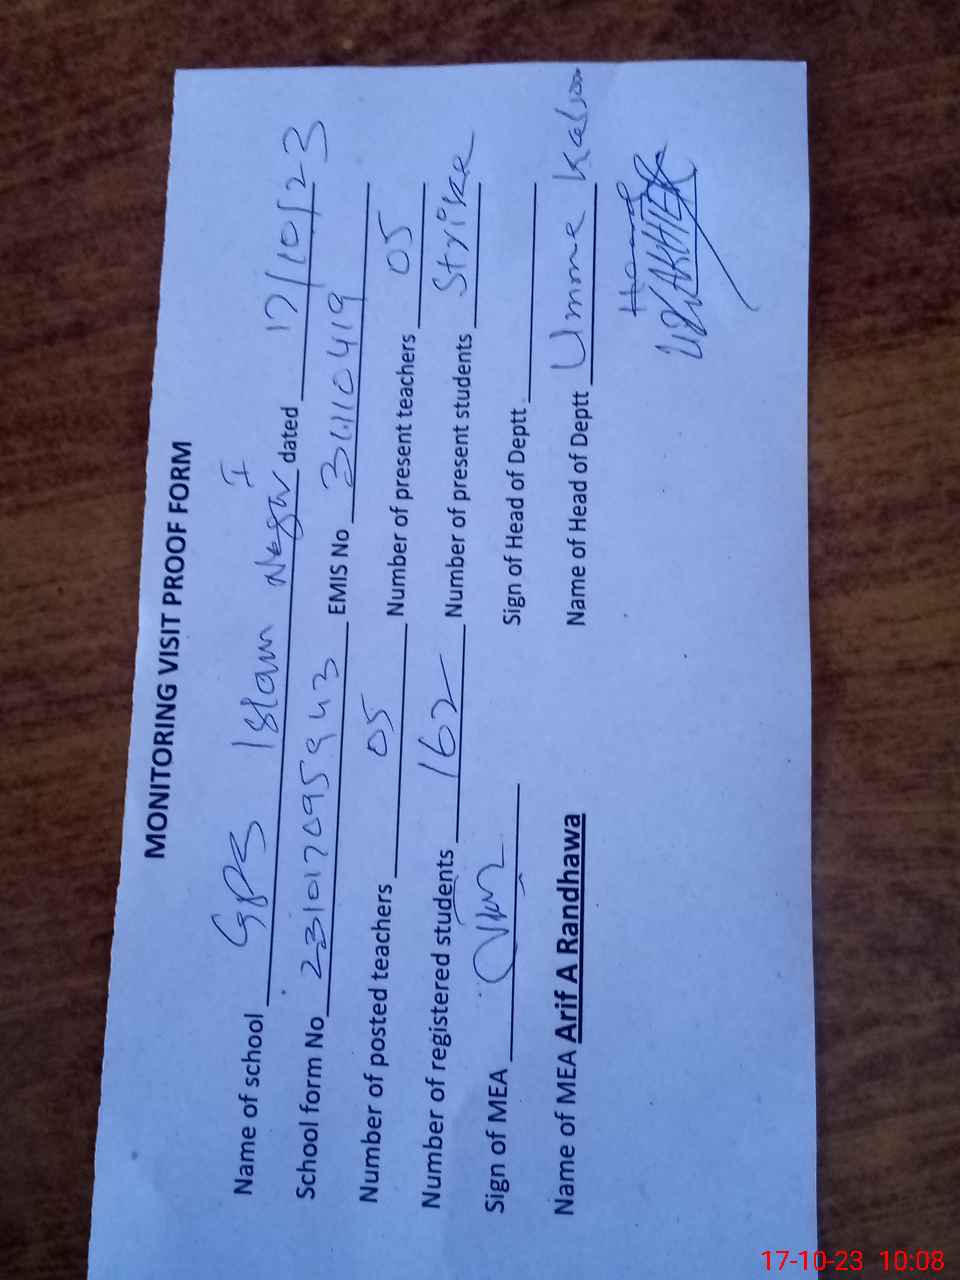 MONITORING VISIT PROOF FORM
Name of school GPS Islam Nagar I dated 17/10/23
School form No 231017095943 EMIS No
Number of posted teachers 05 Number of present teachers 05
Number of registered students 162 Number of present students Strike
Sign of MEA Sign of Head of Deptt
Name of MEA Arif A Randhawa Name of Head of Deptt Umme
17-10-23 10:08